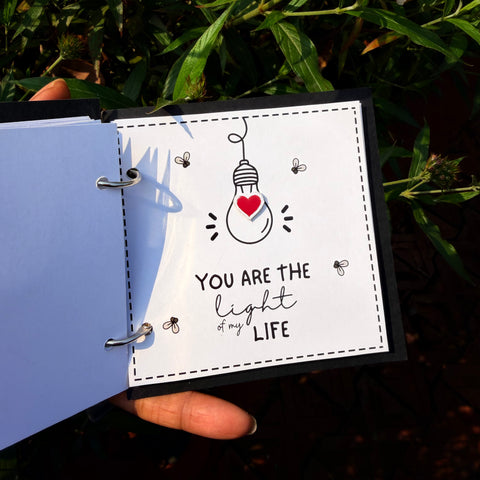 YOU ARE THE
light
of my LIFE